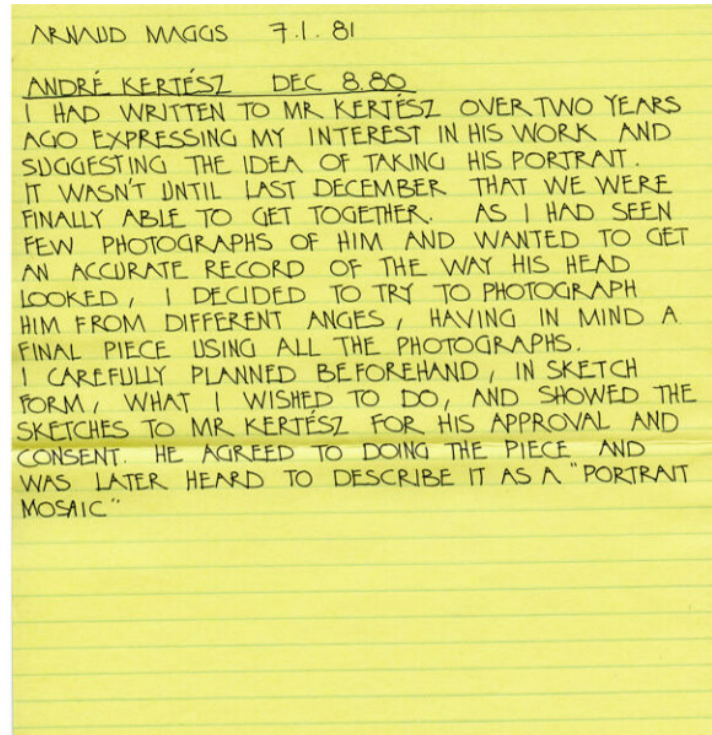 ARNAUD MAGGS 7.1.81
ANDRÉ KERTÉSZ DEC 8.80
I HAD WRITTEN TO MR KERTÉSZ OVER TWO YEARS
AGO EXPRESSING MY INTEREST IN HIS WORK AND
SUGGESTING THE IDEA OF TAKING HIS PORTRAIT.
IT WASN'T UNTIL LAST DECEMBER THAT WE WERE
FINALLY ABLE TO GET TOGETHER. AS I HAD SEEN
FEW PHOTOGRAPHS OF HIM AND WANTED TO GET
AN ACCURATE RECORD OF THE WAY HIS HEAD
LOOKED, I DECIDED TO TRY TO PHOTOGRAPH
HIM FROM DIFFERENT ANGES, HAVING IN MIND A
FINAL PIECE USING ALL THE PHOTOGRAPHS.
I CAREFULLY PLANNED BEFOREHAND, IN SKETCH
FORM, WHAT I WISHED TO DO, AND SHOWED THE
SKETCHES TO MR KERTÉSZ FOR HIS APPROVAL AND
CONSENT. HE AGREED TO DOING THE PIECE AND
WAS LATER HEARD TO DESCRIBE IT AS A "PORTRAIT
MOSAIC"